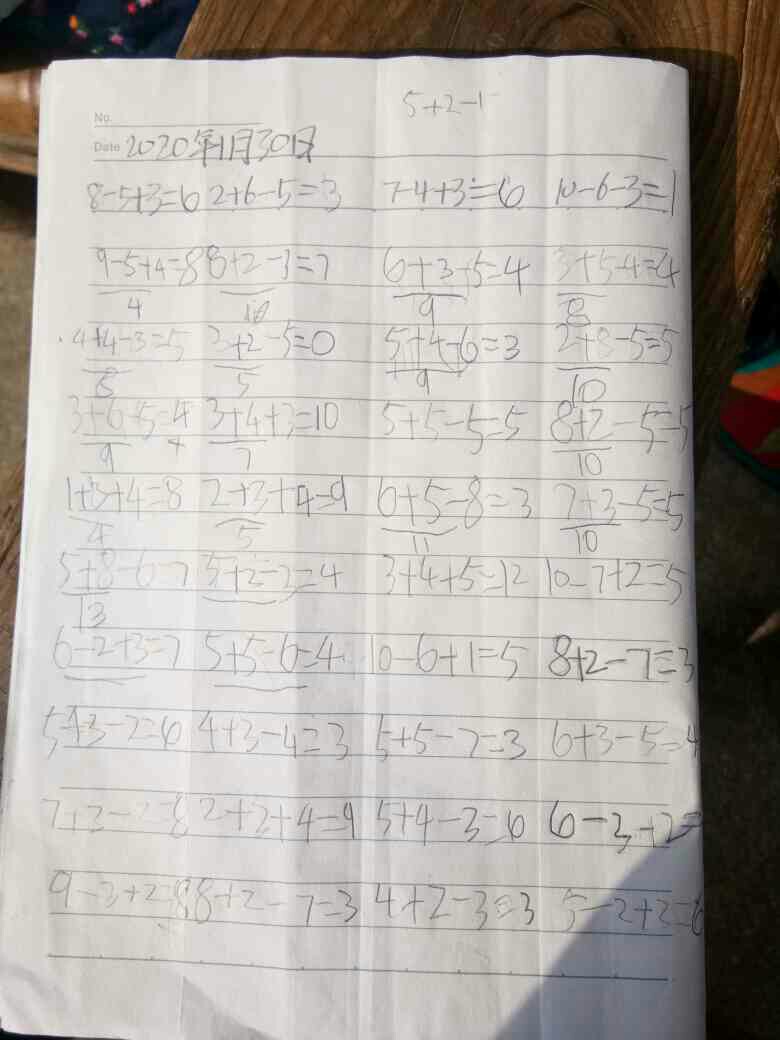 5+2-1
No.
Date 2020年1月30日
8-5+3=6 2+6-5=3 7-4+3=6 10-6-3=1
9-5+4=8 8+2-3=7 6+3-5=4 3+5-4=4
4 10 9 8
4+4-3=5 3+2-5=0 5+4-6=3 2+8-5=5
8 5 9 10
3+6-5=4 3+4+3=10 5+5-5=5 8+2-5=5
9 4 7 10
1+3+4=8 2+3+4=9 6+5-8=3 7+3-5=5
4 5 11 10
5+8-6=7 5+2-3=4 3+4+5=12 10-7+2=5
13
6-2+3=7 5+5-6=4 10-6+1=5 8+2-7=3
5+3-2=6 4+3-4=3 5+5-7=3 6+3-5=4
7+3-2=8 2+3+4=9 5+4-3=6 6-3+2=
9-3+2=8 8+2-7=3 4+2-3=3 5-2+3=6